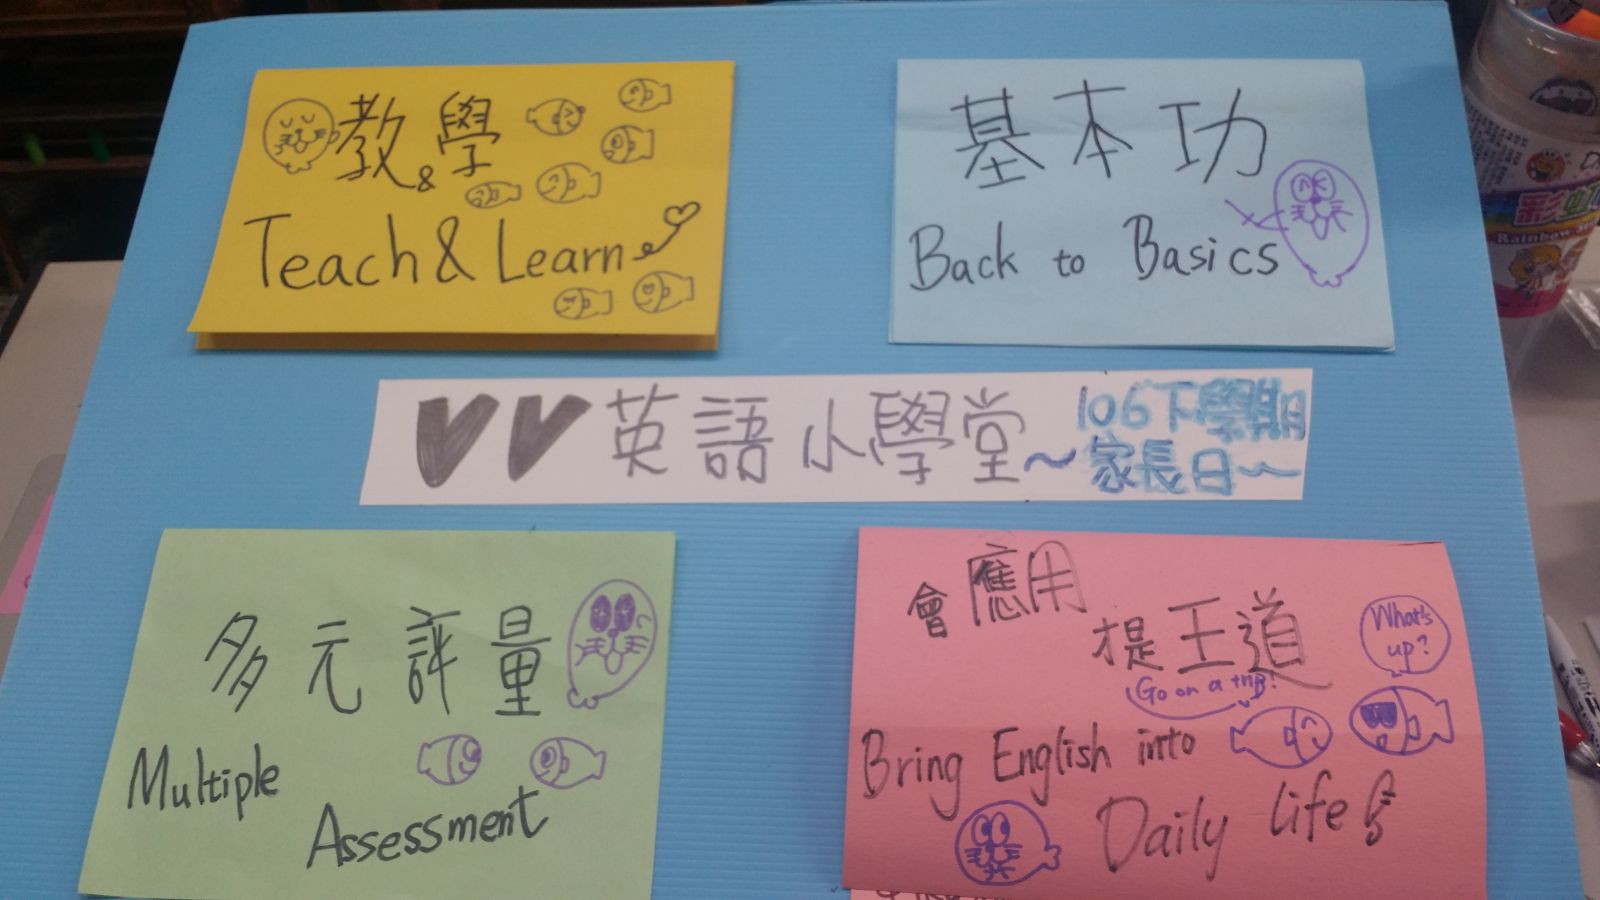 教&學
Teach & Learn
基本功
Back to Basics
VV英語小學堂~
106下學期
家長日~
多元評量
Multiple
Assessment
會應用
才是王道
What's
up?
Go on a trip!
Bring English into
Daily life
彩虹
Rainbow